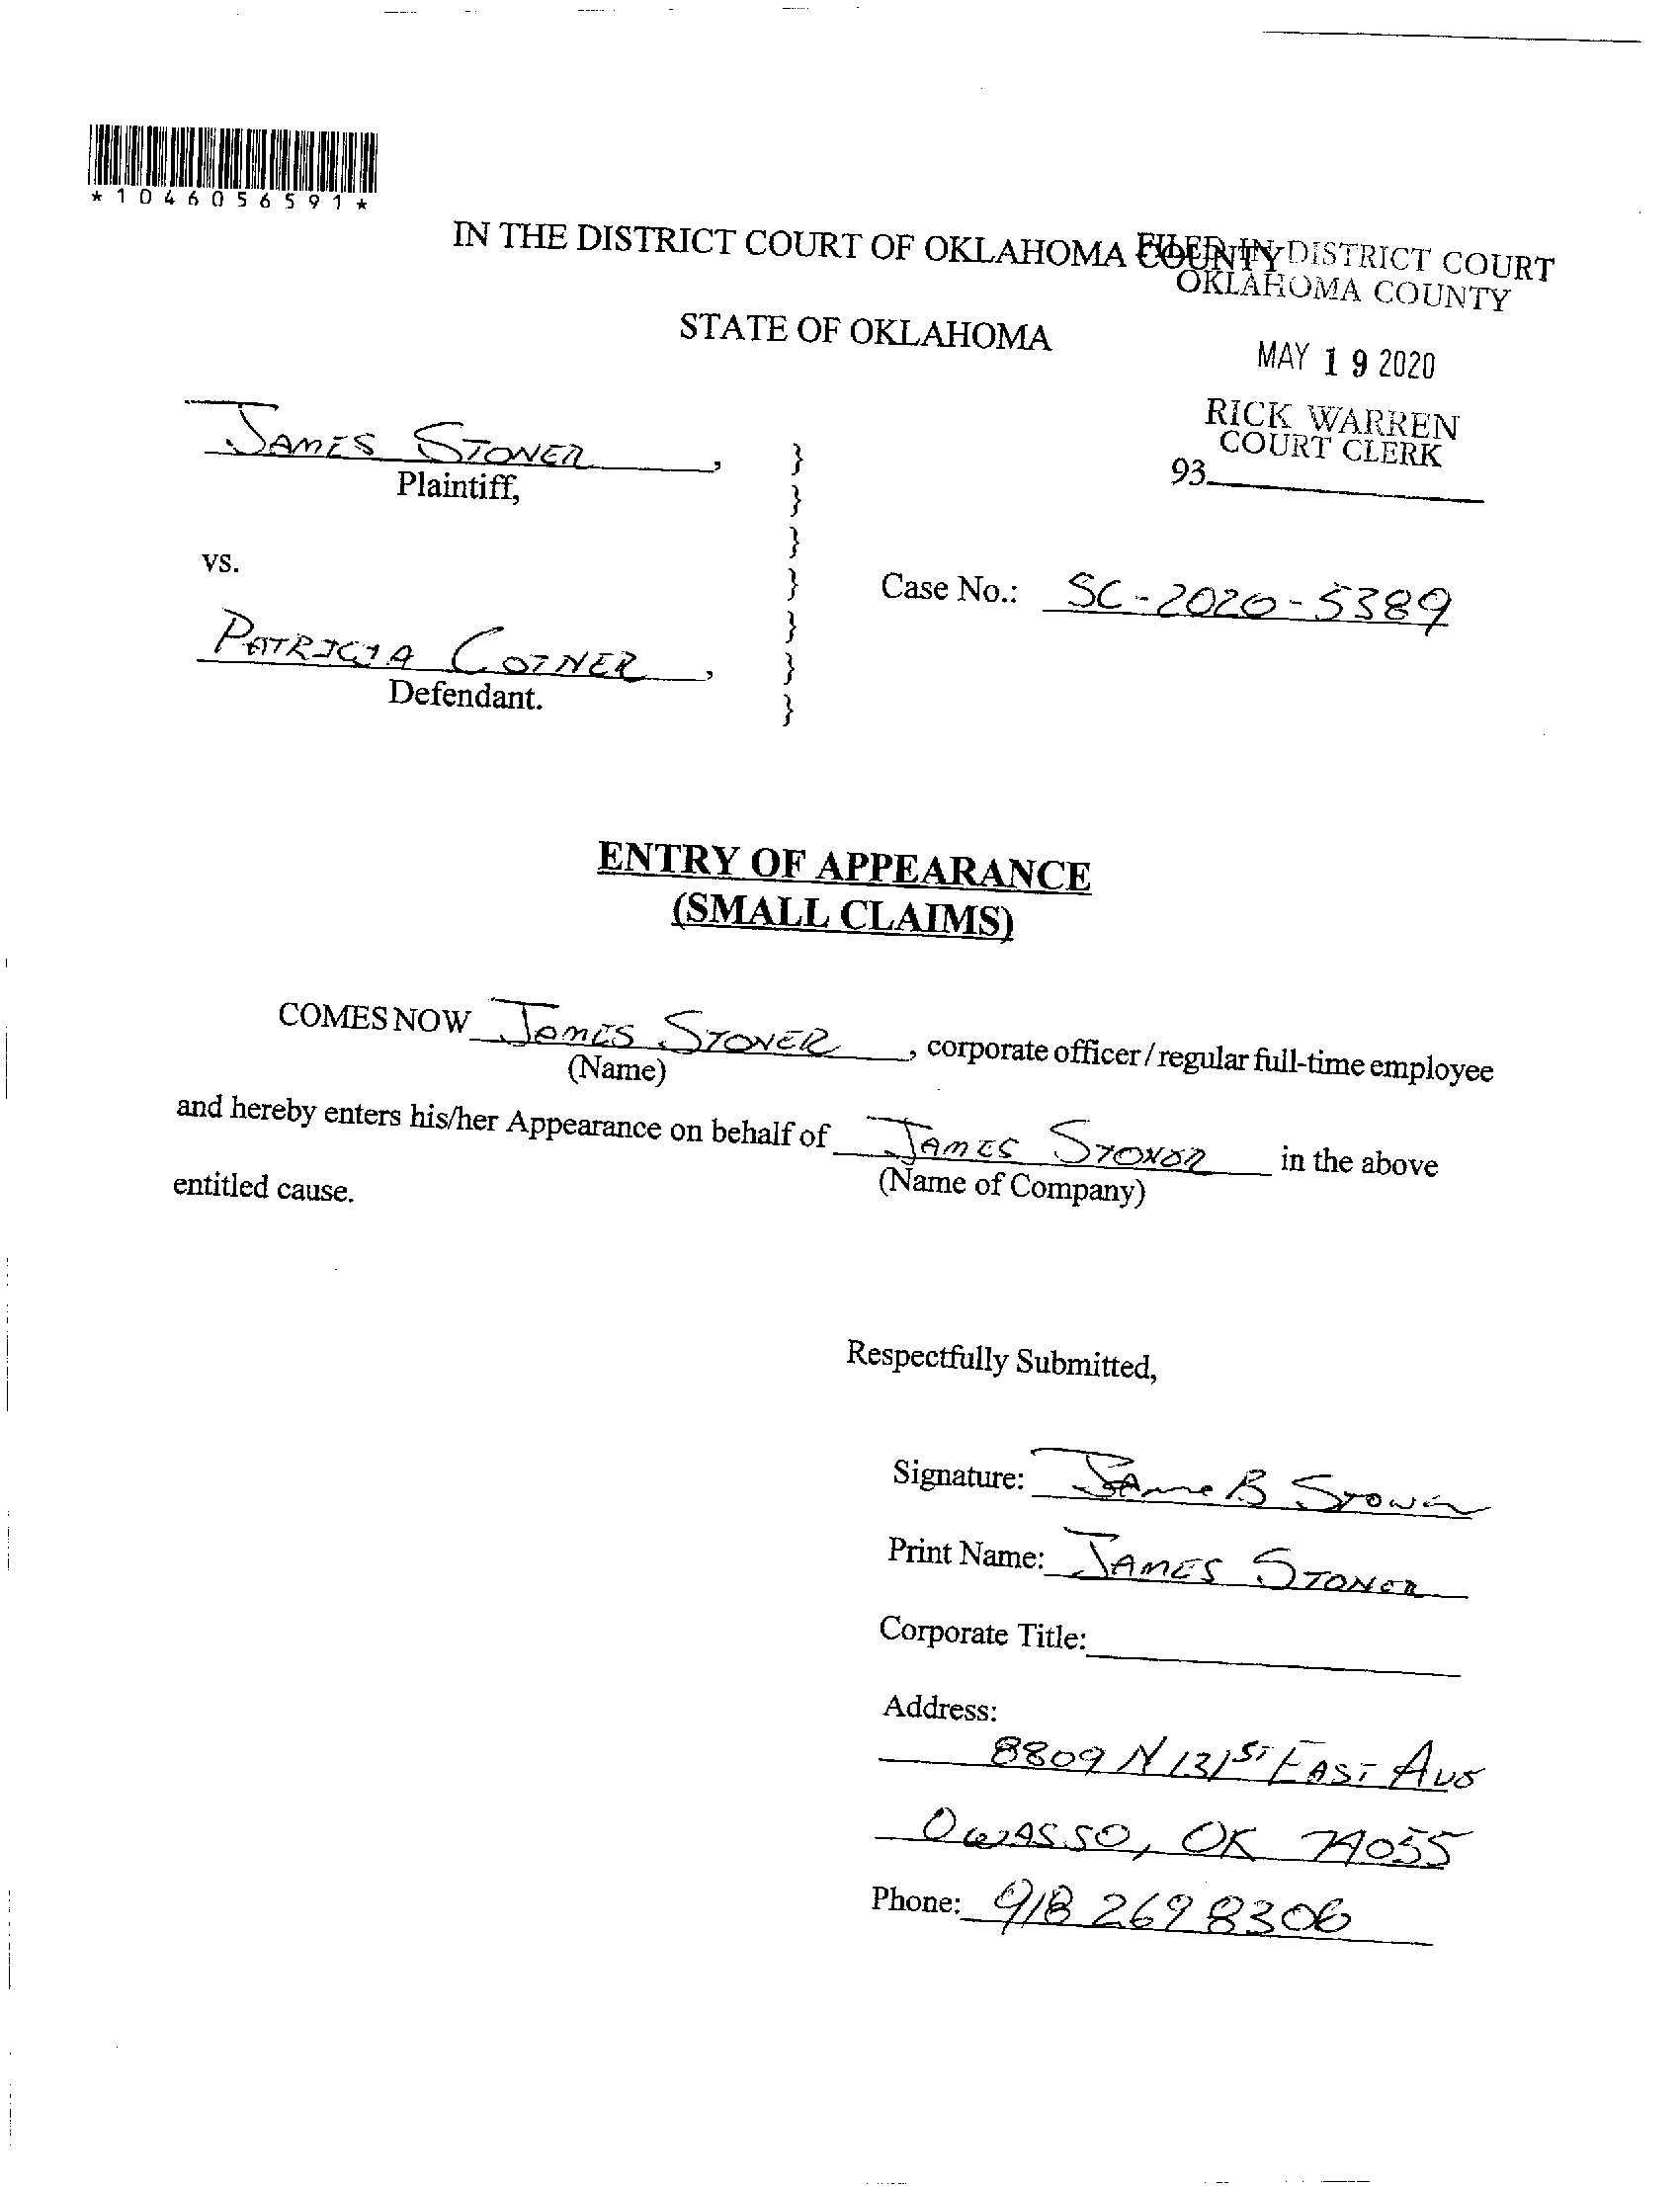 *1046056591*
IN THE DISTRICT COURT OF OKLAHOMA COUNTY
FILED IN DISTRICT COURT
OKLAHOMA COUNTY
STATE OF OKLAHOMA
MAY 19 2020
RICK WARREN
COURT CLERK
93
JAMES STONER,
Plaintiff,
}
}
}
}
}
}
}
vs.
Case No.: SC-2020-5389
PATRICIA COINER,
Defendant.
ENTRY OF APPEARANCE
(SMALL CLAIMS)
COMES NOW JAMES STONER, corporate officer/regular full-time employee
(Name)
and hereby enters his/her Appearance on behalf of JAMES STONER in the above
(Name of Company)
entitled cause.
Respectfully Submitted,
Signature: James B Stoner
Print Name: JAMES STONER
Corporate Title:
Address:
8809 N 131ST EAST AVE
OWASSO, OK 74055
Phone: 918 269 8306